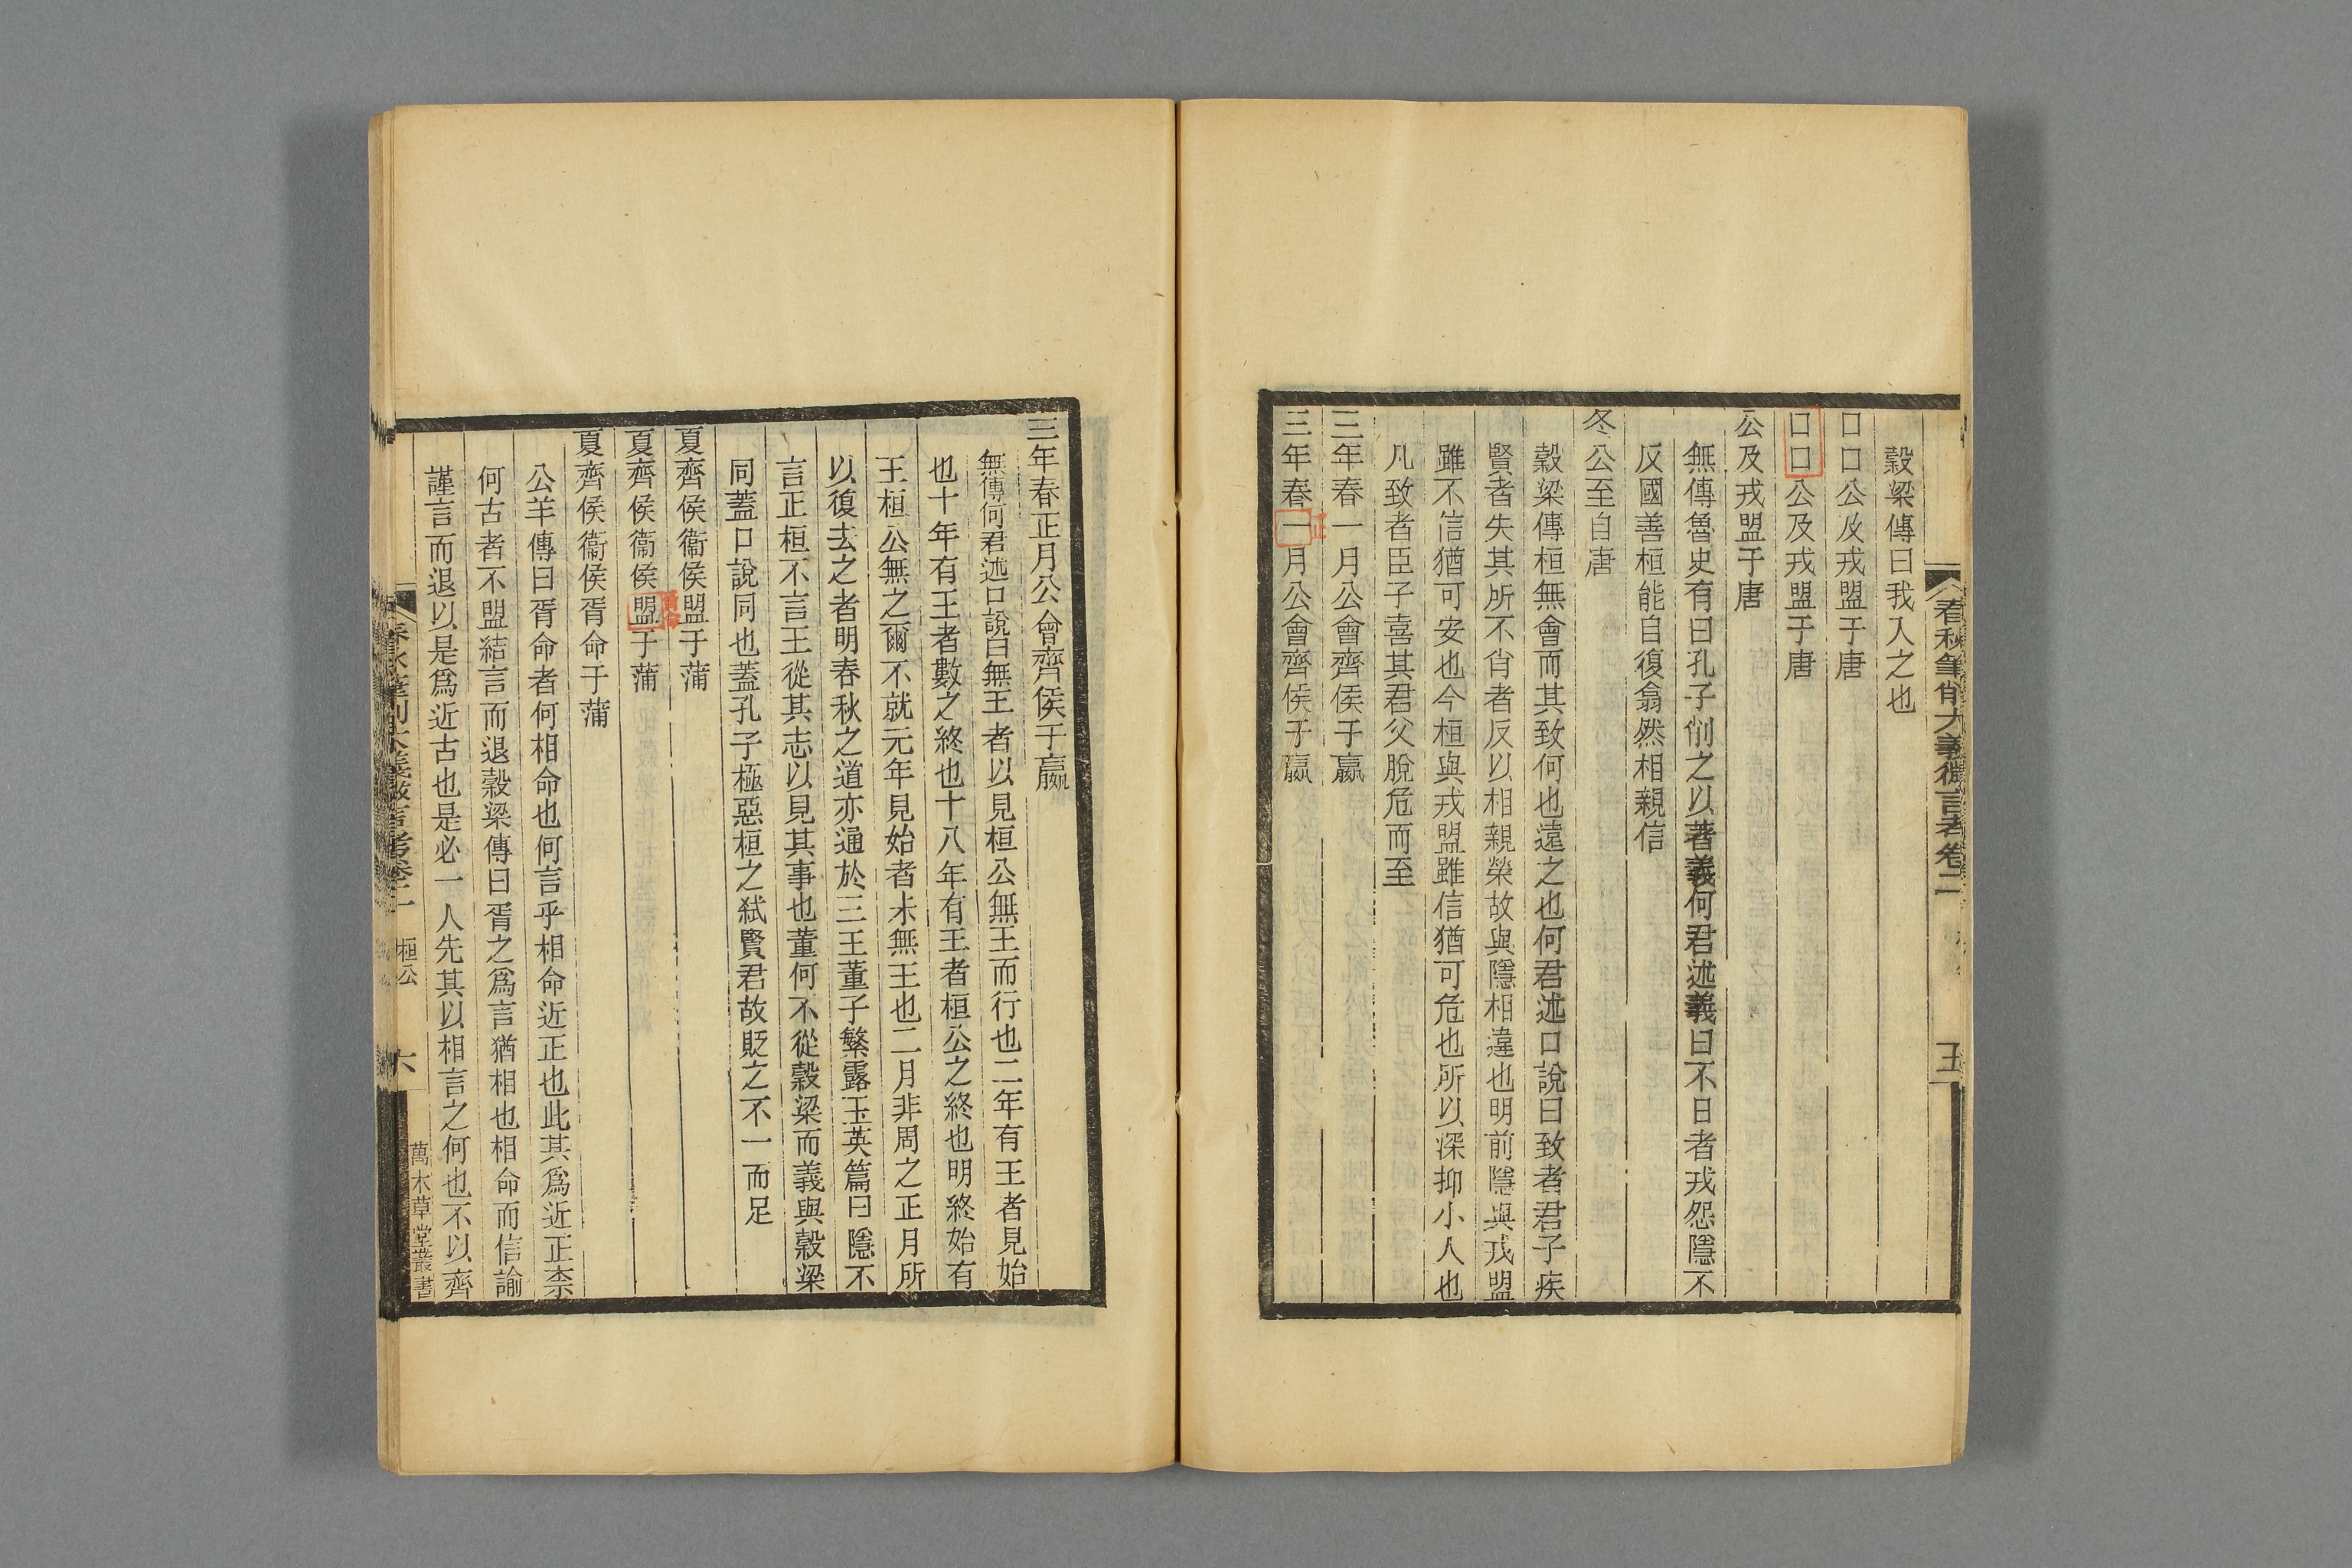 穀梁傳曰我入之也
口口公及戎盟于唐
口口公及戎盟于唐
公及戎盟于唐
無傳魯史有日孔子削之以著義何君述義曰不日者戎怨隱不
反國善桓能自復翕然相親信
冬公至自唐
穀梁傳桓無會而其致何也遠之也何君述口說曰致者君子疾
賢者失其所不肖者反以相親榮故與隱相違也明前隱與戎盟
雖不信猶可安也今桓與戎盟雖信猶可危也所以深抑小人也
凡致者臣子喜其君父脫危而至
三年春一月公會齊侯于嬴
三年春一月公會齊侯于嬴
正
春秋筆削大義微言考卷二
五
三年春正月公會齊侯于嬴
無傳何君述口說曰無王者以見桓公無王而行也二年有王者見始
也十年有王者數之終也十八年有王者桓公之終也明終始有
王桓公無之爾不就元年見始者未無王也二月非周之正月所
以復去之者明春秋之道亦通於三王董子繁露玉英篇曰隱不
言正桓不言王從其志以見其事也董何不從穀梁而義與穀梁
同蓋口說同也蓋孔子極惡桓之弒賢君故貶之不一而足
夏齊侯衞侯盟于蒲
夏齊侯衞侯盟于蒲
胥命
夏齊侯衞侯胥命于蒲
公羊傳曰胥命者何相命也何言乎相命近正也此其爲近正柰
何古者不盟結言而退穀梁傳曰胥之爲言猶相也相命而信諭
謹言而退以是爲近古也是必一人先其以相言之何也不以齊
春秋筆削大義微言考卷二 桓公
六
萬木草堂叢書